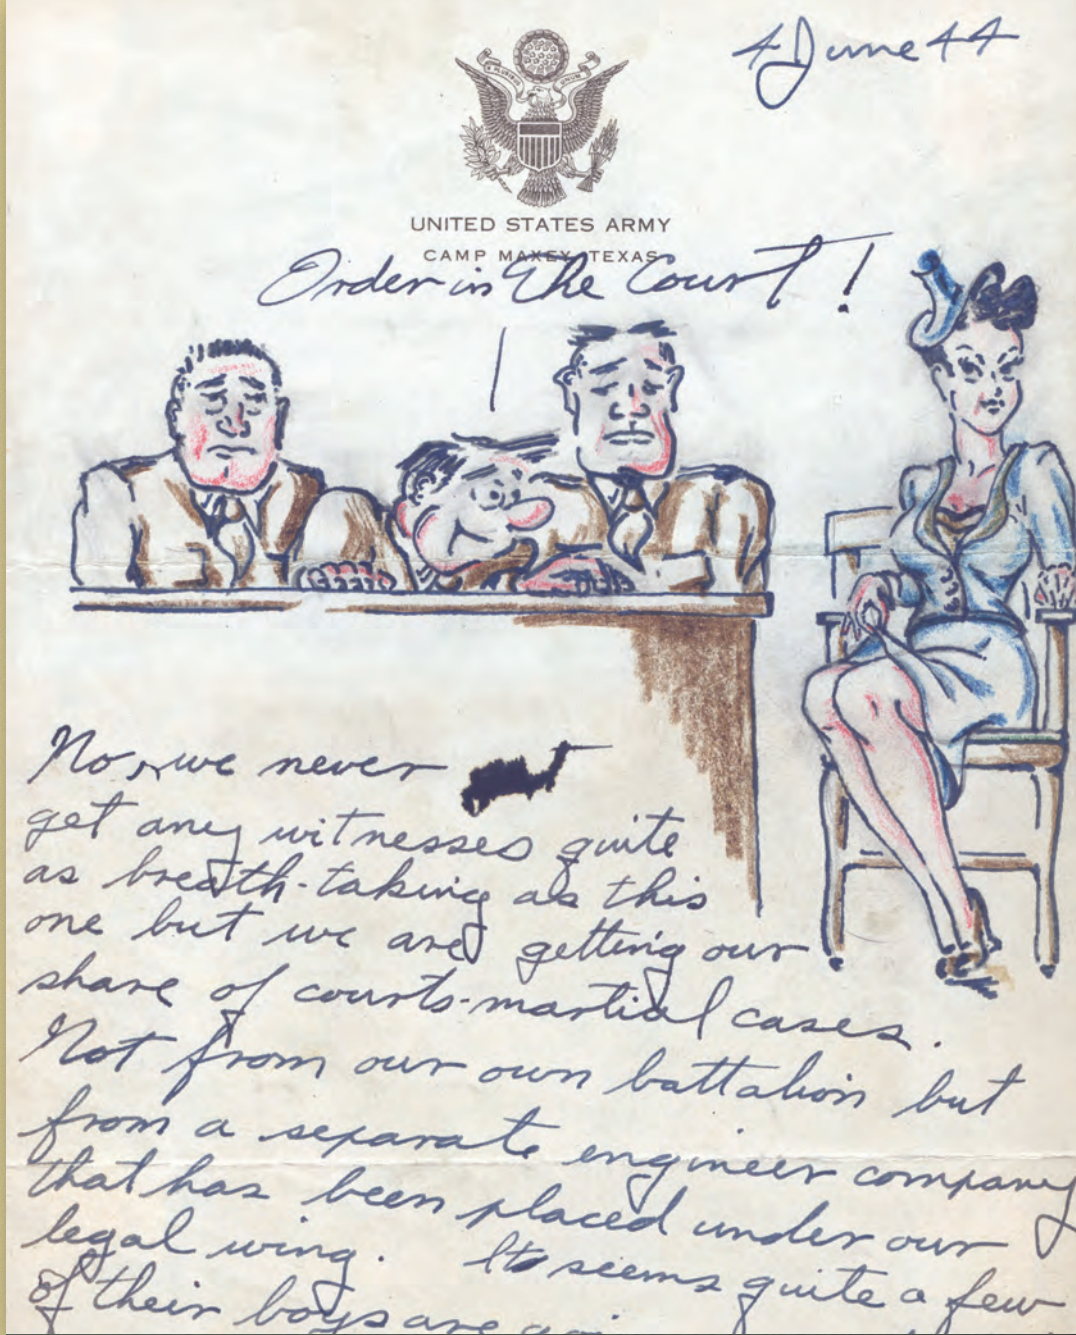 4 June 44
E PLURIBUS UNUM
UNITED STATES ARMY
CAMP MAXEY, TEXAS
Order in the Court!
No, we never
get any witnesses quite
as breath-taking as this
one but we are getting our
share of courts-martial cases.
Not from our own battalion but
from a separate engineer company
that has been placed under our
legal wing. It seems quite a few
of their boys are